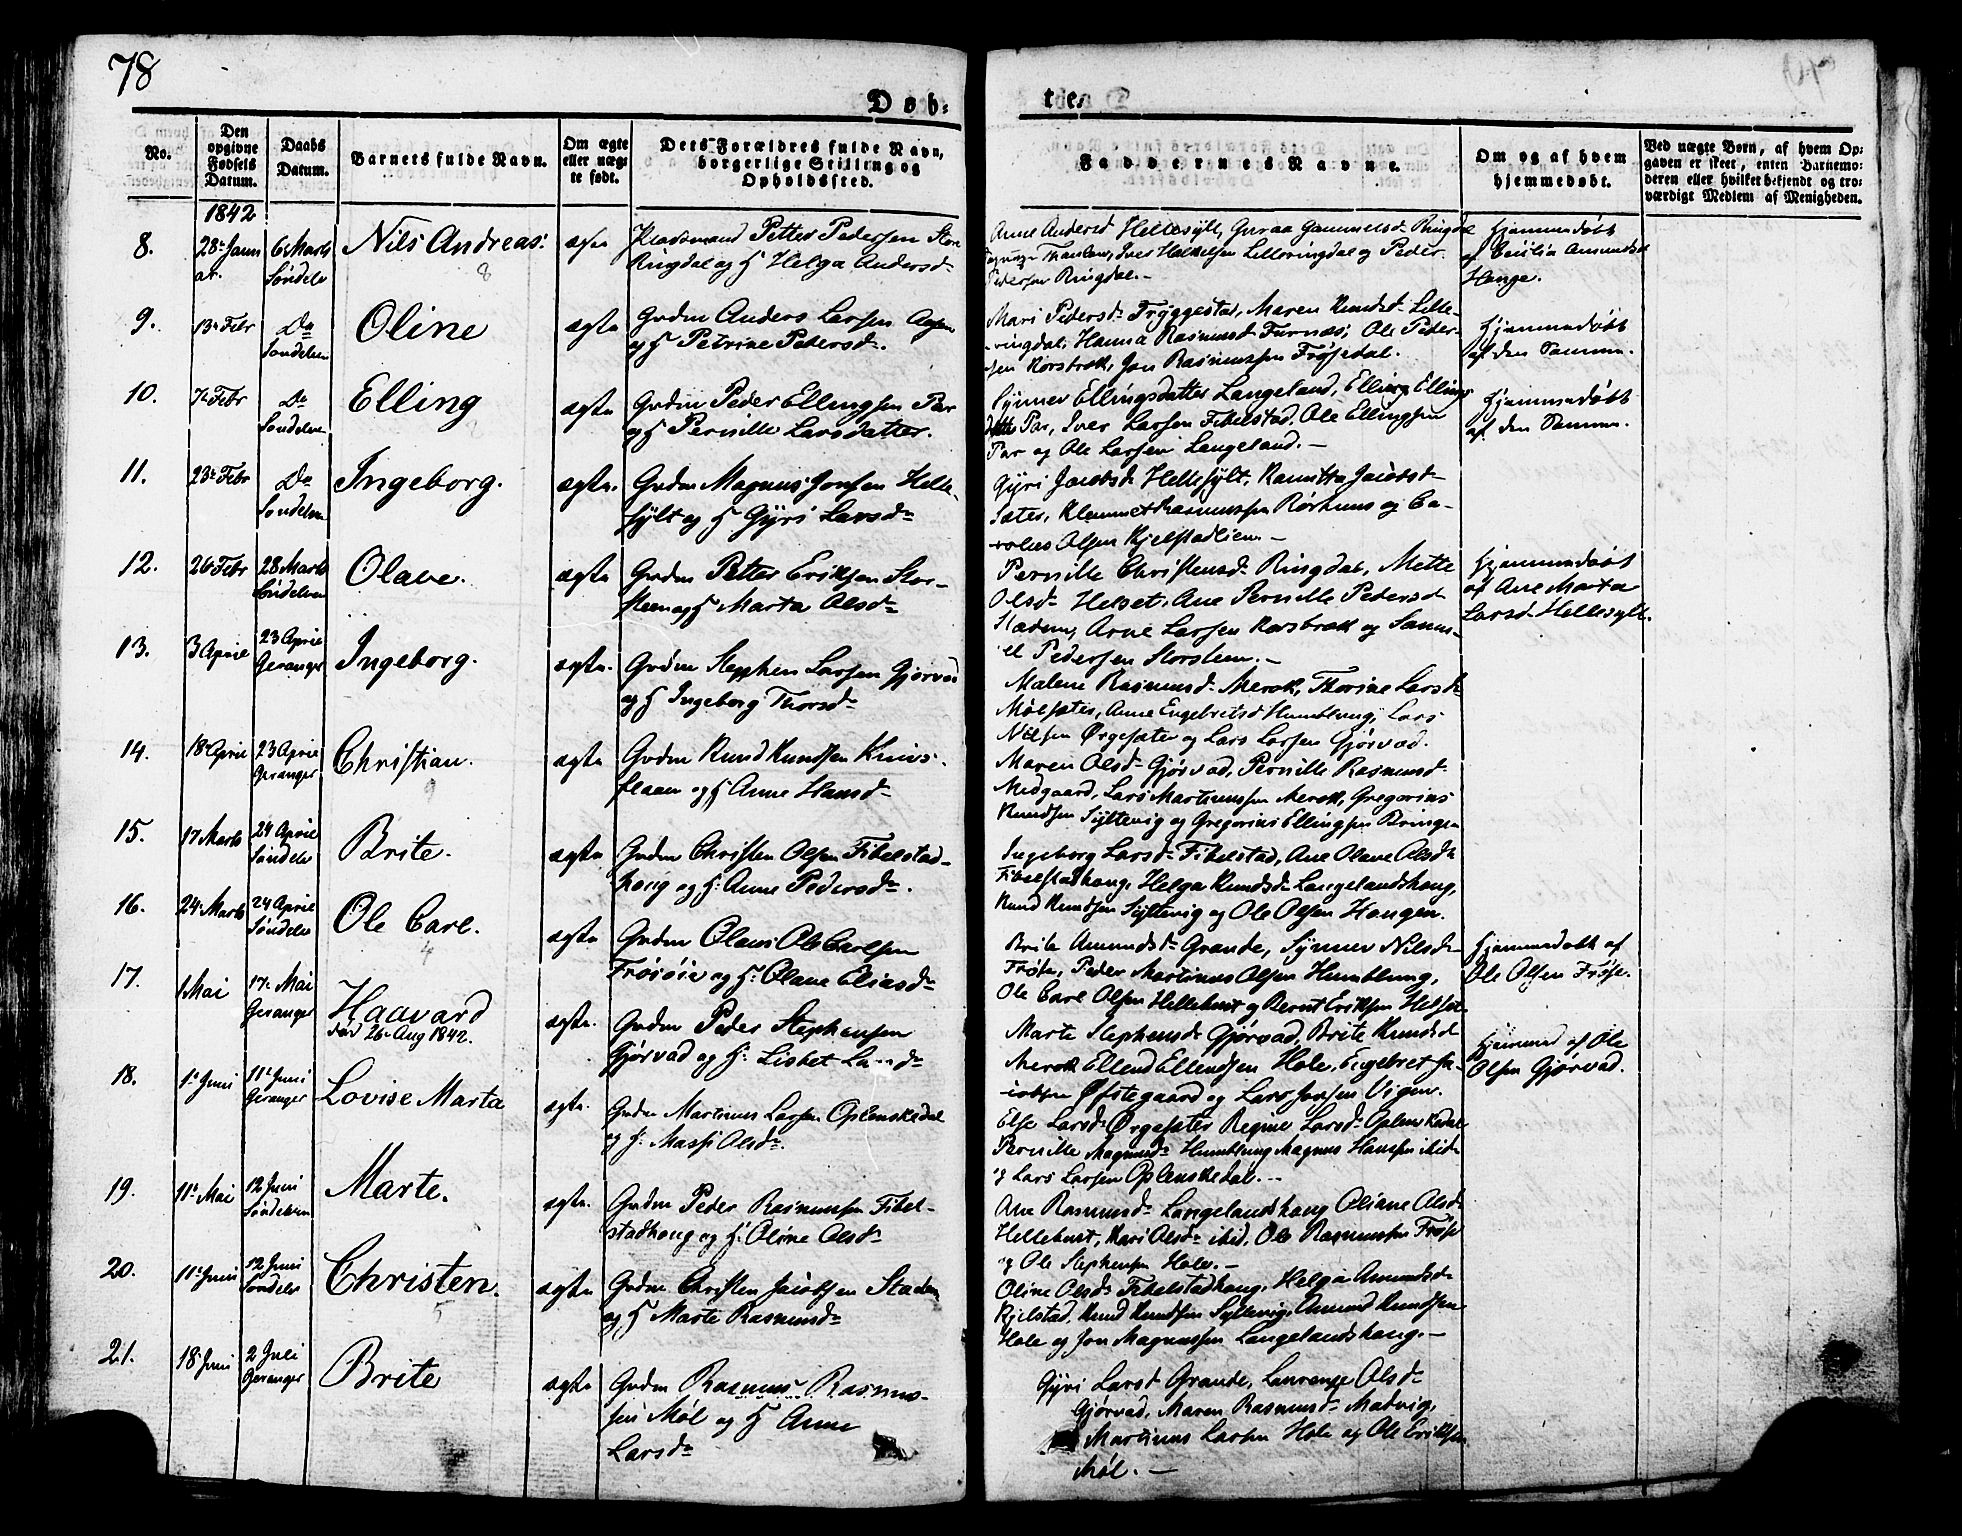 78
Døb=
tes
No.
Den opgivne Fødsels Datum.
Daabs Datum.
Barnets fulde Navn.
Om ægte eller uægte født.
Dets Forældres fulde Navn, borgerlige Stilling og Opholdssted.
Faddernes Navne.
Om og af hvem hjemmedøbt.
Ved uægte Børn, af hvem Opgaven er skeet, enten Barnemoderen eller hvilket bekjendt og troværdigt Medlem af Menigheden.
1842
8.
28 Janu
ar.
6 Marts
Søndelv
Nils Andreas.
8
ægte
Pladsmand Petter Pedersen Stor
Ringdal og H Helga Andersd
Anne Andersd Hellesylt, Guraa Gammelsd Ringdal
Iver Halkelsen Lilleringdal og Peder
Pedersen Ringdal.
Hjemmedøbt
af Cecilia Amundsd
Hauge.
9.
13 Febr
Do
Søndelven
Oline
ægte
Grdm Anders Larsen Aasen
og H Petrine Pedersd.
Mari Pedersd Tryggestad, Maren Knudsd Lille-
ringdal, Hanna Rasmusd Furnæs, Ole Peder-
sen Korsbrek, Jon Rasmussen Frøisedal.
Hjemmedøbt
af den Samme.
10.
7 Febr
Do
Søndelven
Elling
ægte
Grdm Peder Ellingsen Par
og H Pernille Larsdatter.
Synnev Ellingsdatter Langeland, Elling Ellings
Par, Iver Larsen Fibelstad, Ole Ellingsen
Par og Ole Larsen Langeland.
Hjemmedøbt
af den Samme.
11.
23 Febr
Do
Søndelven
Ingeborg.
ægte.
Grdm Magnus Jonsen Helle-
sylt og H Gyri Larsd
Gyri Jacobsd Hellesylt, Jacobsd
Sæter, Klemmet Rasmussen Rørhuus og Ca-
rolus Olsen Kjelstadlien.
12.
26 Febr
28 Marts
Søndelven
Olave.
ægte
Grdm Petter Eriksen Stor-
steen og H Marta Olsd
Pernille Christensd Ringdal, Mette
Olsd Helset, Ane Pernille Pedersd
Stadem, Arne Larsen Korsbrek og Samu-
el Pedersen Storsteen.
Hjemmedøbt
af Ane Marta
Larsd Hellesylt.
13.
3 April
23 April
Geranger
Ingeborg.
ægte.
Grdm Stephen Larsen Gjørvad
og H Ingeborg Thorsd
Malene Rasmusd Merok, Thorine Larsd
Mølsæter, Anne Engebretsd Humblung, Lars
Nilsen Ørgesæter og Lars Larsen Gjørvad.
14.
18 April
23 April
Geranger
Christian.
9
ægte
Grdm Knud Knudsen Knivs-
flaaen og H Anne Hansd
Maren Olsd Gjørvad, Pernille Rasmusd
Medgaard, Lars Martinussen Merok, Gregorius
Knudsen Syltevig og Gregorius Ellingsen Bringen
15.
17 Marts
24 April
Søndelv
Brite.
ægte
Grdm Christen Olsen Fibelstad-
houg og H: Anne Pedersd.
Ingeborg Larsd Fibelstad, Ane Olave Olsd
Fibelstadhoug, Helga Knudsd Langelandshoug,
Knud Knudsen Syltevig og Ole Olsen Haugen.
16.
24 Marts
24 April
Søndelv
Ole Carl.
4
ægte
Grdm Olaus Ole Carlsen
Frøisøie og H: Olave Eliasd
Brite Amundsd Grande, Synnev Nilsd
Frøse, Peder Martinus Olsen Humblung,
Ole Carl Olsen Hellehust og Bernt Eriksen Helset
Hjemmedøbt af
Ole Olsen Frøse.
17.
1 Mai
17 Mai
Geranger
Haavard
død 26 Aug 1842.
ægte.
Grdm Peder Stephensen
Gjørvad og H: Lisbet Larsd
Marte Stephensd Gjørvad, Brite Knudsd
Merok, Ellend Ellendsen Hole, Engebret Ja-
cobsen Øfstegaard og Lars Jonsen Vigen.
Hjemmed af Ole
Olsen Gjørvad.
18.
1 Juni
11 Juni
Geranger
Lovise Marta
ægte.
Grdm Martinus Larsen Oplenskedal
og H: Massi Olsd.
Else Larsd Ørgesæter, Regine Larsd Oplenskedal
Pernille Magnusd Humblung, Magnus Hansen ibid
og Lars Larsen Oplenskedal.
19.
11 Mai
12 Juni
Søndelven
Marte.
ægte.
Grdm Peder Rasmussen Fibel-
stadhoug og H: Oline Olsd
Ane Rasmusd Langelandshoug, Oliane Olsd
Hellehust, Kari Olsd ibid, Ole Rasmussen Frøse
og Ole Stephensen Hole.
20.
11 Juni
12 Juni
Søndelv
Christen.
5
ægte
Grdm Christen Jacobsen Stadem
og H Marte Rasmusd
Oline Olsd Fibelstadhoug, Helga Amundsd
Kjelstad, Knud Knudsen Syltevig, Amund Knudsen
Hole og Jon Magnussen Langelandshoug.
21.
18 Juni
2 Juli
Geranger
Brite
ægte
Grdm Rasmus Rasmus-
sen Møl og H Anne
Larsd
Gyri Larsd Grande, Laurense Olsd
Gjørvad, Maren Rasmusd Matvig,
Martinus Larsen Hole og Ole Eriksen
Møl.